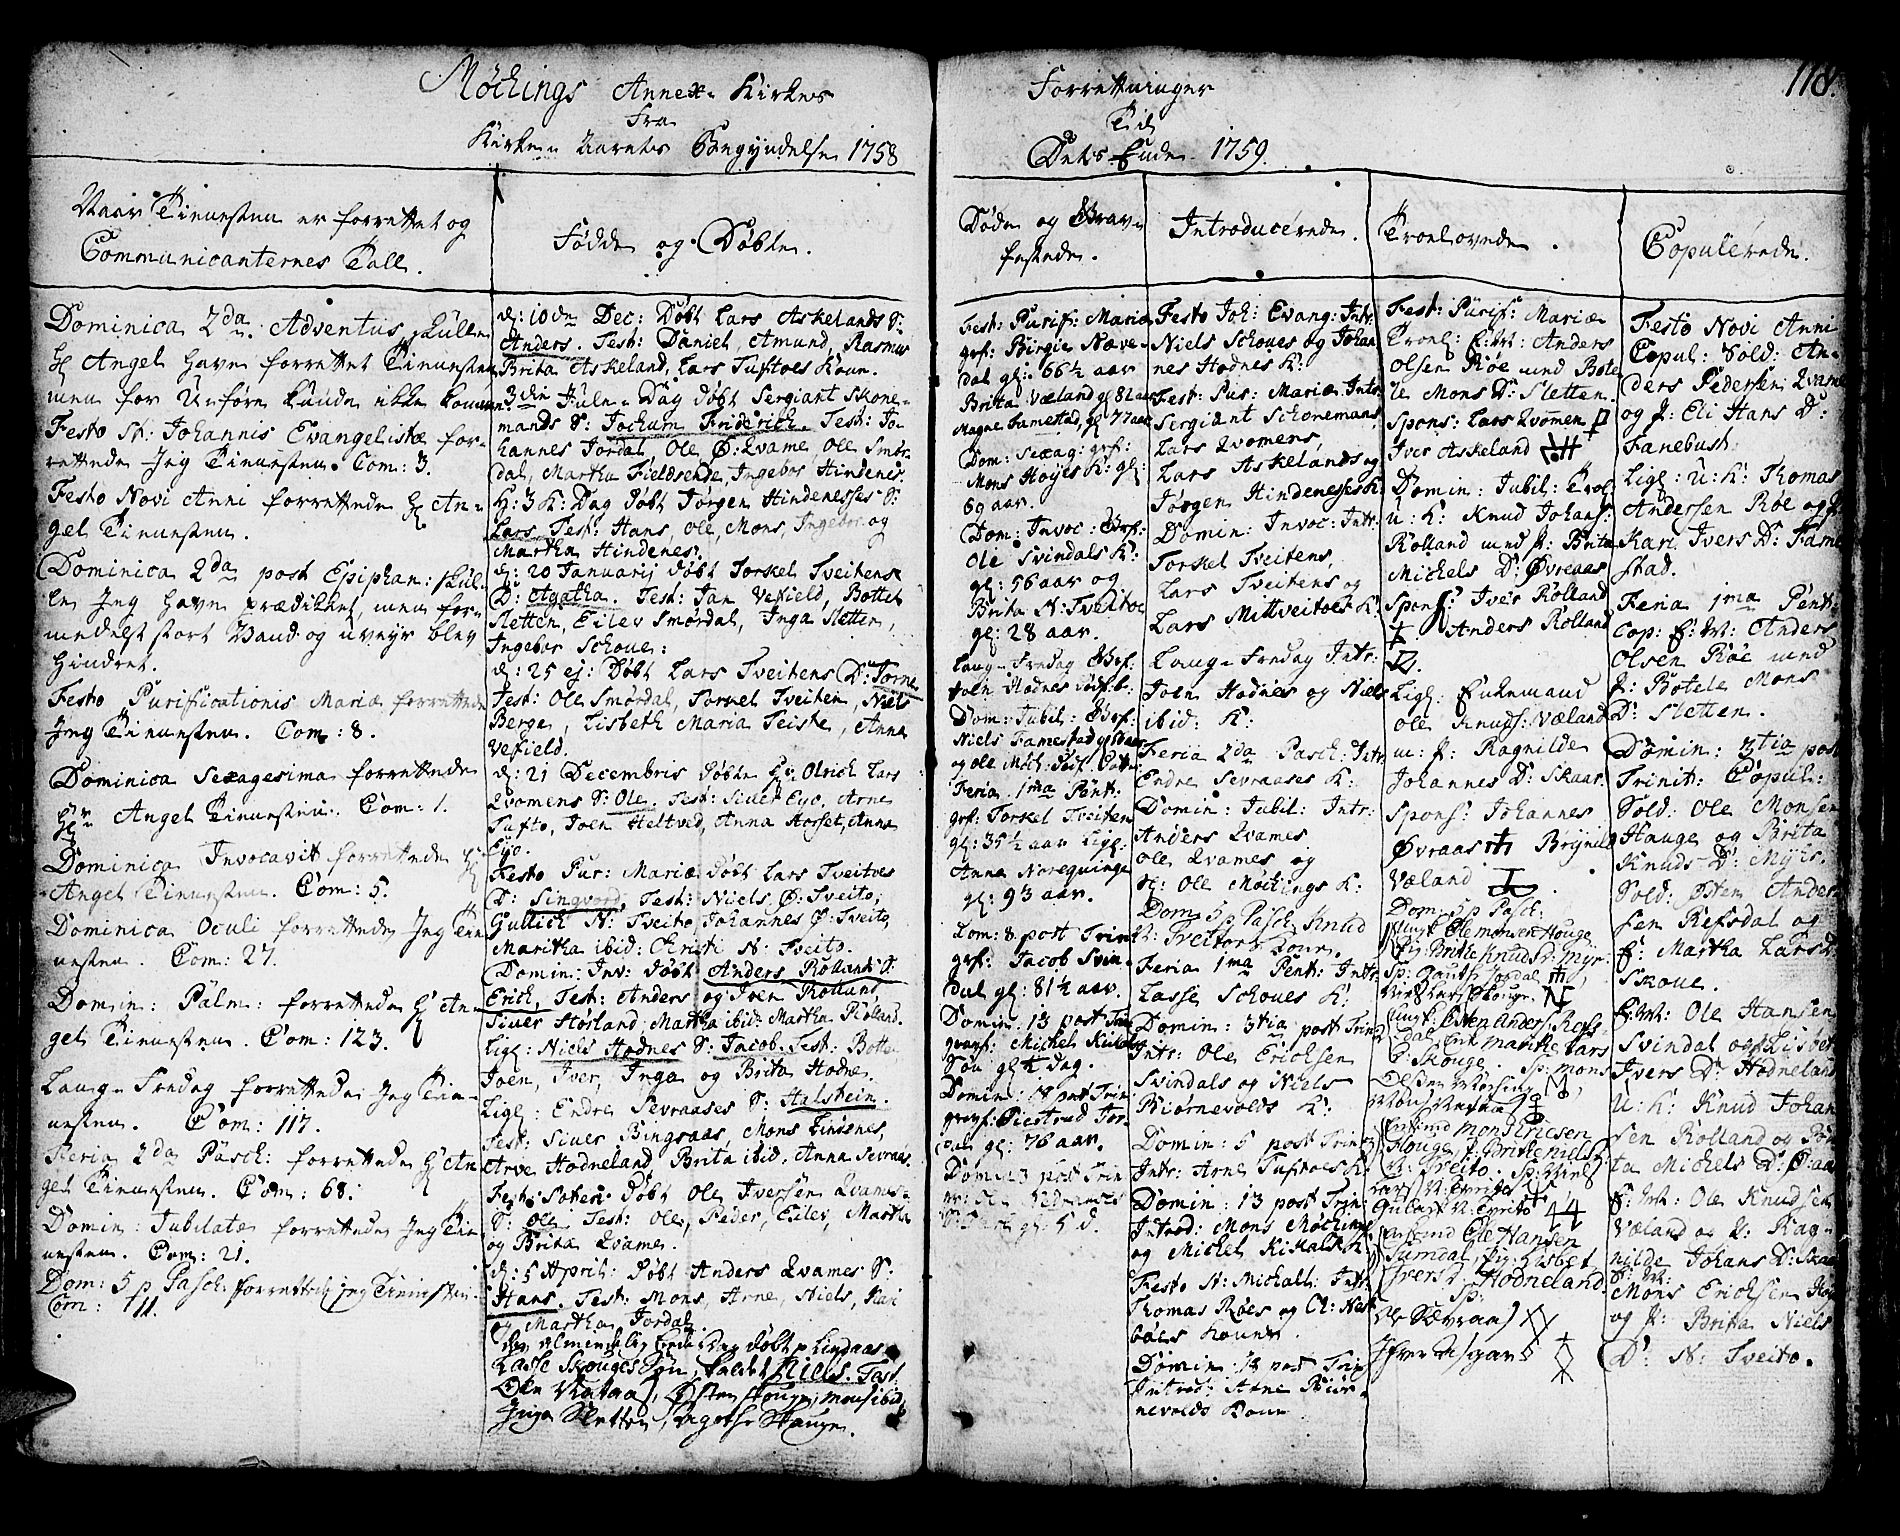 Møchings Annex-Kirkes
Fra
Kirke-Aarets Begyndelse 1758
Forrettninger
Til
Dets Ende 1759.
118.
Naar Tienesten er forrettet og
Communicanternes Tall.
Fødde og Døbte.
Døde og Grav-
festede.
Introducerede.
Troelovede.
Copulerede.
Dominica 2da Adventus skulle
Hr Angel have forrettet Tienesten
men for Uføre kunde ikke komme
Festo St: Johannis Evangelistæ for-
rettede Jeg Tienesten. Com: 3.
Festo Novi Anni forrettede Hr An-
gel Tienesten.
Dominica 2da post Epiphan: skul-
le Jeg have prædiket, men for-
medelst stort Vand og uveyr blev
hindret.
Festo Purificationis Mariæ forrettede
Jeg Tienesten. Com: 8.
Dominica Sexagesima forrettede
Hr Angel Tienesten. Com: 1.
Dominica Invocavit forrettede Hr
Angel Tienesten. Com: 5.
Dominica Oculi forrettede Jeg Tie-
nesten. Com: 27.
Domin: Palm: forrettede Hr An-
gel Tienesten. Com: 123.
Lang-Fredag forrettede Jeg Tie-
nesten. Com: 117.
Feria 2da Pasch: forrettede Hr An-
gel Tienesten. Com: 68.
Domin: Jubilate forrettede Jeg Tie-
nesten. Com: 21.
Dom: 5 p Pasch: forrettede jeg Tienesten.
Com: 111.
d: 10de Dec: Døbt Lars Askelands S:
Anders. Test: Daniel, Amund, Rasmus
Brita Askeland, Lars Tuftoes Kone.
3die Jule-Dag døbt Sergiant Skone-
mands S: Jochum Friderich. Test: Jo-
hannes Jordal, Ole Ø: Qvame, Ole Smør-
dal, Martha Fieldsende, Ingebor Hindenes.
H: 3 K: Dag døbt Jørgen Hindenesses S:
Lars Test: Hans, Ole, Mons, Ingebor og
Martha Hindenes.
d: 20 Januarij døbt Torkel Tveitens
D: Agatha. Test: Jan Vefield, Bottel
Sletten, Eilev Smørdal, Inga Sletten,
Ingebor Schoue:
d: 25 ej: Døbt Lars Tveitens D: Torne
Test: Ole Smørdal, Torkel Tveiten, Niels
Berge, Lisbeth Maria Teiste, Anna
Vefield.
d: 21 Decembris døbte Hr: Olrich Lars
Qvomens S: Ole. Test: Siver Eye, Arne
Tufto, Joen Heltved, Anna Horset, Anna
Eye.
Festo Pur: Mariæ døbt Lars Tveitoes
D: Singvor, Test: Niels Ø: Tveito,
Gullich N: Tveito, Johannes Ø: Tveito,
Maritha ibid: Christi N: Tveito.
Domin: Inv: døbt Anders Rollands S:
Erich, Test: Anders og Iver Rolland,
Siver Høsland, Martha ibid: Martha Rolland.
Lige: Niels Hodnes S: Jacob. Test: Botte
Joen, Iver, Inga og Brita Hodne.
Lige: Endre Sevraases S: Halstein.
Test: Siver Bingsaas, Mons Lindnes,
Arve Hodneland, Brita ibid. Anna Sevraas.
Fest: døbt Ole Iversen Qvames-
S: Ole Test: Ole, Peder, Eilev, Martha
og Britæ Qvame.
d: 5 April: døbt Anders Qvames S:
Hans. Test: Mons, Arne, Niels, Kari
og Martha Jordal.
døbt p Lindaas
Lasse Skouges Søn, kaldet Niels. Test:
Østen Skouge, Mons ibid,
Inga Sletten, Ingebor Skouge.
Fest: Purif: Mariæ
grf: Birgie Næve-
dal gl: 66½ aar
Brita Væland gl 82 aar
Magne Famestad, gl 77 aar
Dom: Sexag: grf:
Mons Høyes K: gl:
69 aar.
Dom: Invoc: Grf:
Ole Svindals K:
gl: 56 aar og
Brita N: Tveitoe
gl: 28 aar.
Lang-Fredag Grf:
Joen Hodnes dødf: b:
Dom: Jubil: Grf:
Niels Famestad
Feria 1ma Pent:
grf: Torkel Tveiten
gl: 35½ aar Lige:
Anna Noreqvinge
gl: 93 aar.
Dom: 8 post Trin
grf: Jacob Svin-
dal gl: 81½ aar.
Domin: 13 post Trin
gravf: Michel
Søn gl ½ dag.
Domin: 18 post Trin
gravf: Siestrud Jor-
dal gl: 76 aar.
Domin 3 post Trin
Festo Joh: Evang: Intr:
Niels Schoues og Johan-
nes Hodnes K:
Fest: Pur: Mariæ Intr:
Sergiant Schonemans,
Lars Qvomens,
Lars Askelands og
Jørgen Hindeneses K:
Domin: Invoc: Intr:
Torkel Tveitens,
Lars Tveitens og
Lars Mittveitoes K:
Lang-Fredag Intr:
Joen Hodnes og Niels
ibid: K:
Feria 2da Pasch: Intr:
Endre Sevraases K:
Domin: Jubil: Intr:
Anders Qvames
Ole Qvames og
Ole Møchings K:
Dom 5 p Pasch Knud
Tveitors Kone.
Feria 1ma Pent: Intr:
Lasse Schoues K:
Domin: 3tia post Trin
Intr: Ole Erichsen
Svindals og Niels
Biørnevolds K:
Domin: 5 post Trin:
Intr: Arne Tuftoes K:
Domin: 13 post Trin:
Introd: Mons Møching
og Michel K:
Festo St: Michall: Intr:
Thomas Røes og Ol: Nest-
bøes Koner.
Domin: 18 post Trin
Introd: Arne Biør-
nevolds Kone
Fest: Purif: Mariæ
Troel: E: M: Anders
Olsen Røe med Bote-
le Mons D: Sletten.
Spons: Lars Qvomen
Iver Askeland
Domin: Jubil: Trol:
U: K: Knud Johans:
Rolland med P: Brita
Michels D: Øvreaas
Spons: Iver Rolland
Anders Rolland
Lige: Enkemand
Ole Knuds: Væland
m: P: Ragnilde
Johannes D: Skaar.
Spons: Johannes
Øvraas Brynild
Væland
Dom: 5 p Pasch:
Ungk: Ole monsen Houge
Pig: Brithe Knuds D: Myr.
Sp: Jordal
Ungk: Østen Anders: Refs-
dal, Enk: Marithe Lars
D: Skouge. Sp: Mons
Mons Erichsen
Houge P: Brithe Niels
D: N: Tveito. Sp: Niels
Ole Hansen
Svindal, Pig: Lisbet
Ivers D: Hodneland
Sp:
Ole Sævraas
Iver
Festo Novi Anni
Copul: Sold: An-
ders Pedersen Qvame
og P: Eli Hans D:
Fanebust.
Lige: U: K: Thomas
Andersen Røe og P:
Kari Ivers D: Fame-
stad.
Feria 1ma Pent:
Cop: E: M: Anders
Olsen Røe med
P: Botele Mons
D: Sletten.
Domin: 3tia post
Trinit: Copul:
Sold: Ole Monsen
Houge og Brita
Knuds D: Myhr.
Sold: Østen Ander-
sen Refsdal og
E: Martha Lars D:
Skoue.
E: M: Ole Hansen
Svindal og P: Lisbet
Ivers D: Hodneland
U: K: Knud Johan-
sen Rolland og Bri-
ta Michels D: Ø:aas
E: M: Ole Knudsen
Væland og P: Rag-
nilde Johans D: Skaar
E: M:
Mons Erichsen Hou
og P: Britta Niels
D: N: Tveito.